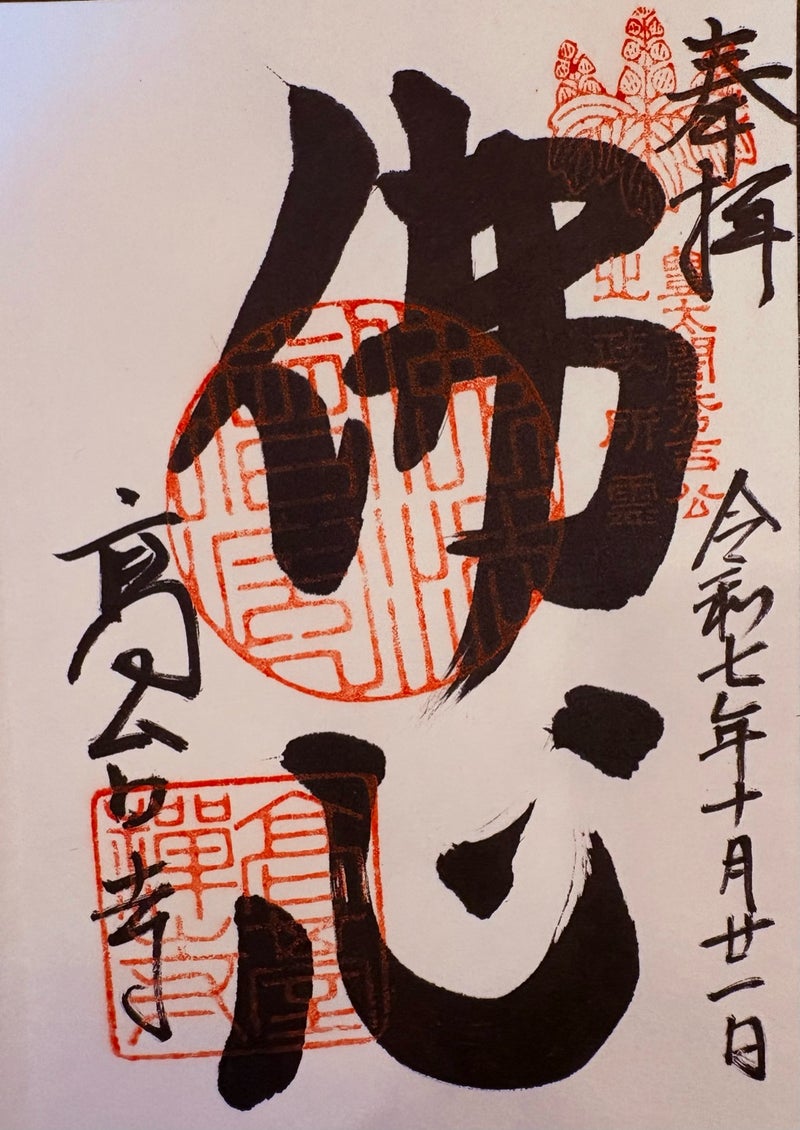 奉拝
令和七年十月廿一日
豐太閤秀吉公
北政所靈
佛心
高台寺
高臺
禪寺